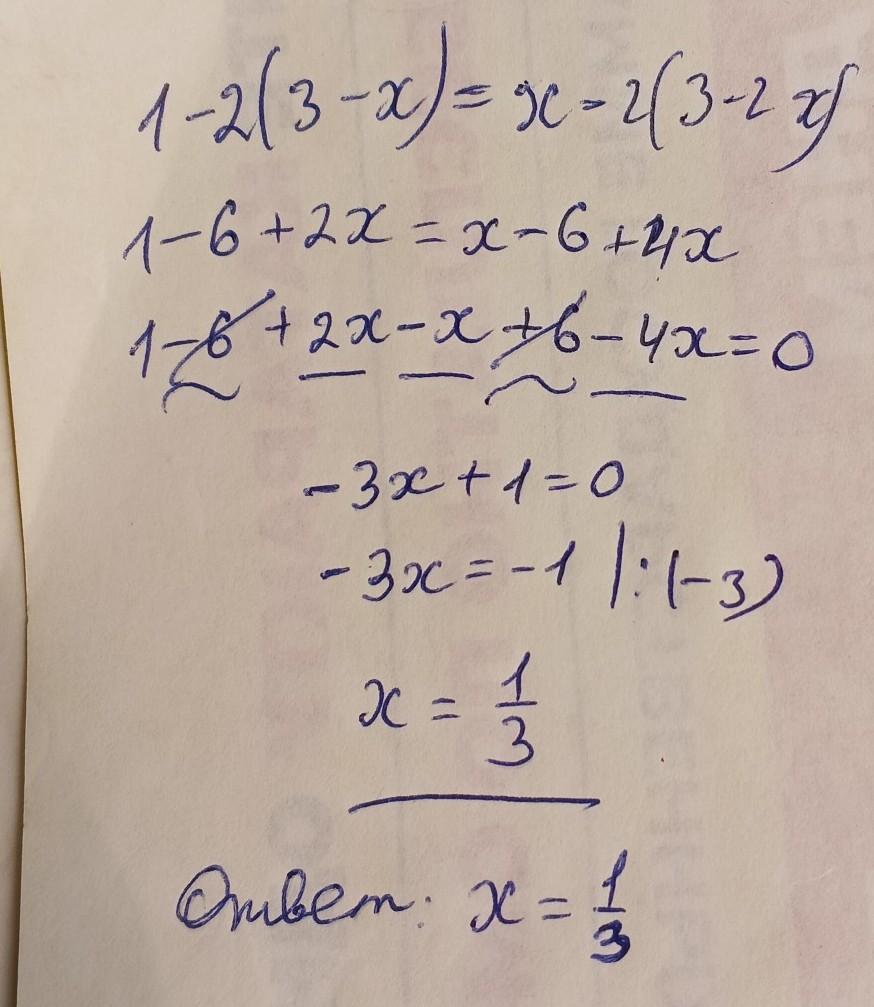 1-2(3-x)=x-2(3-2x)
1-6+2x=x-6+4x
1-6+2x-x+6-4x=0
-3x+1=0
-3x=-1 |:(-3)
x=1/3
Ответ: x=1/3